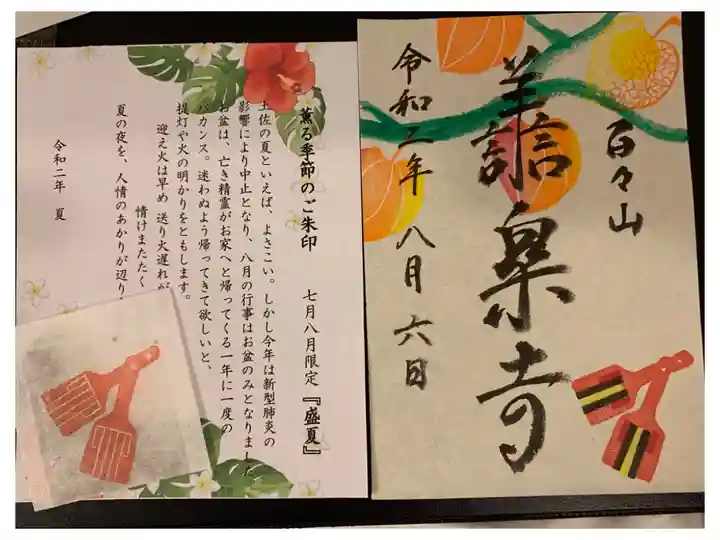 百々山
譱楽寺
令和二年 八月 六日
薫る季節のご朱印 七月八月限定『盛夏』
土佐の夏といえば、よさこい。しかし今年は新型肺炎の
影響により中止となり、八月の行事はお盆のみとなりました
お盆は、亡き精霊がお家へと帰ってくる一年に一度の
バカンス。迷わぬよう帰ってきて欲しいと、
提灯や火の明かりをともします。
迎え火は早め 送り火遅れが
情けまたたく
夏の夜を、人情のあかりが辺り
令和二年 夏